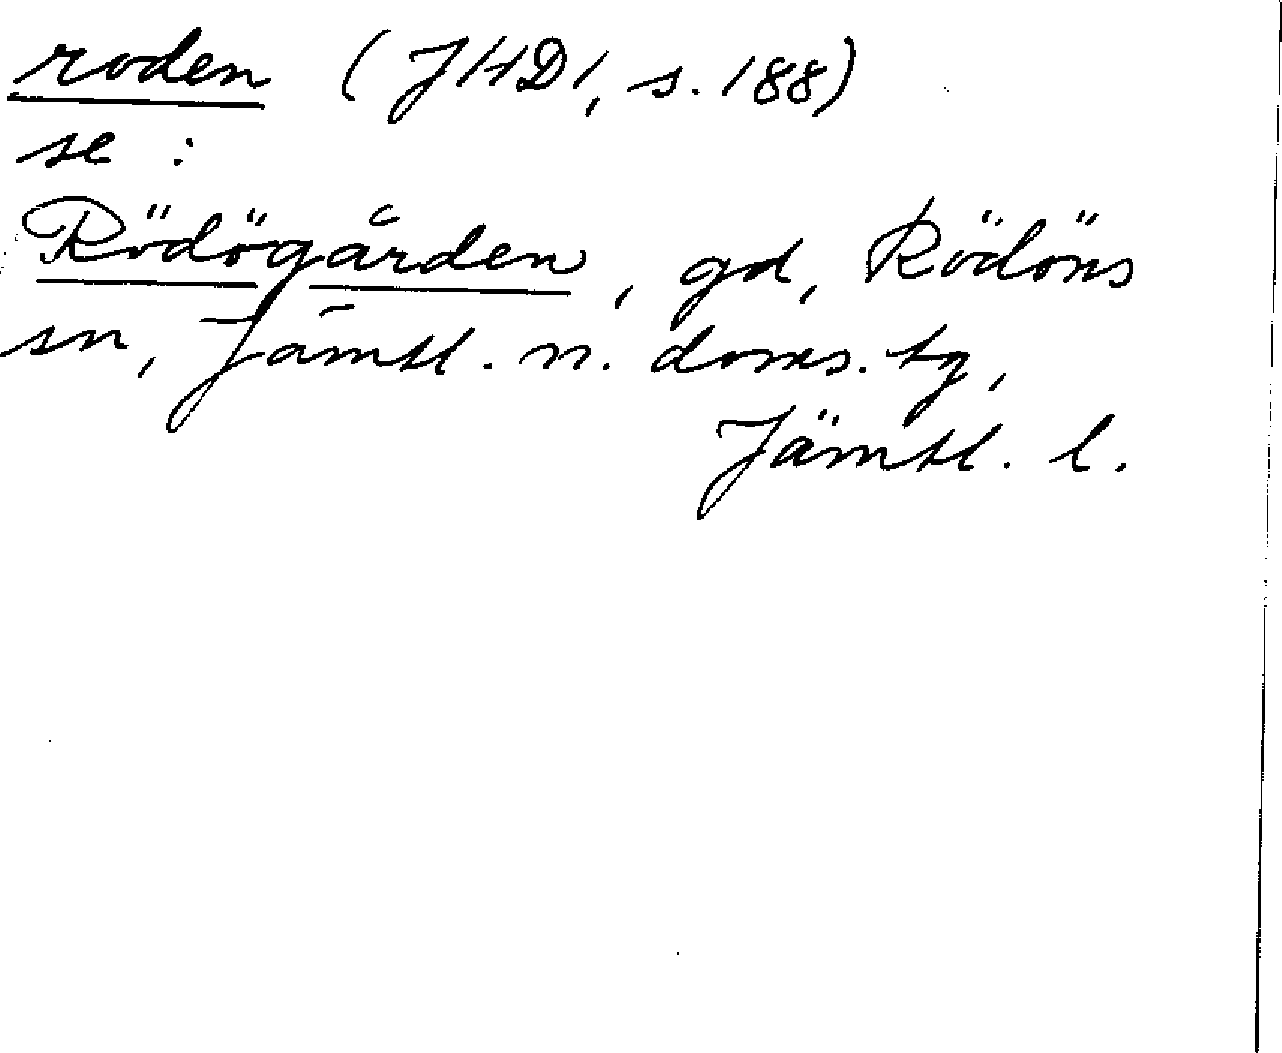 roden (JHD1, s. 188)
se :
Rödögården, gd, Rödöns
sn, Jämtl. n. doms. tg,
Jämtl. l.